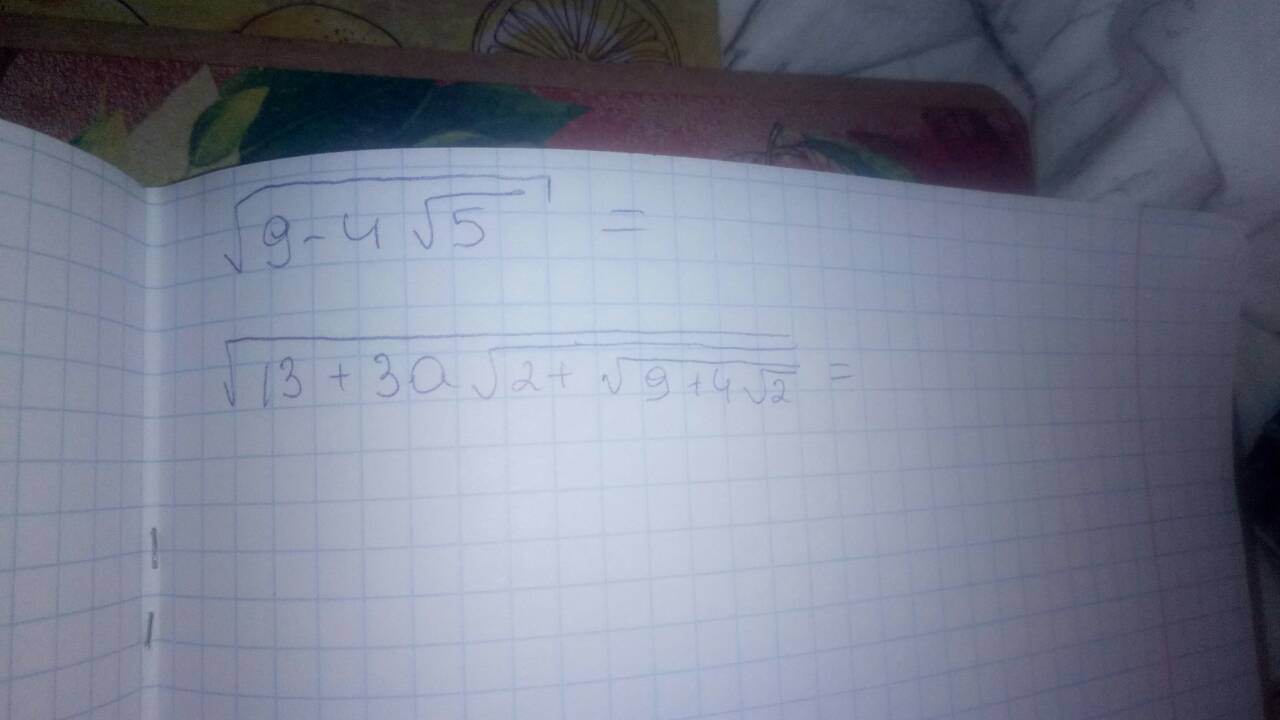 √(9-4√5) =
√(13+30√(2+√(9+4√2))) =